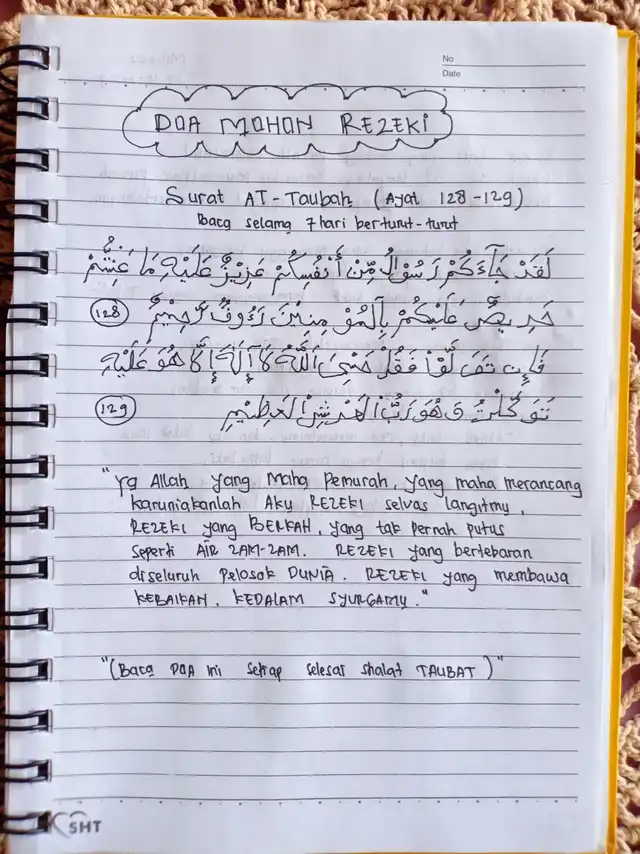 No
Date
DOA MOHON REZEKI
Surat AT-Taubah (Ayat 128-129)
Baca selama 7 hari berturut-turut
لَقَدْ جَآءَكُمْ رَسُوْلٌ مِّنْ أَنْفُسِكُمْ عَزِيْزٌ عَلَيْهِ مَا عَنِتُّمْ
حَرِيصٌ عَلَيْكُمْ بِالْمُؤْمِنِيْنَ رَءُوفٌ رَّحِيْمٌ (128)
فَإِن تَوَلَّوْا فَقُلْ حَسْبِيَ اللّٰهُ لَآ إِلَهَ إِلَّا هُوَ عَلَيْهِ
تَوَكَّلْتُ وَهُوَ رَبُّ الْعَرْشِ الْعَظِيْمِ (129)
"Ya Allah yang Maha Pemurah, yang maha merancang
karuniakanlah Aku REZEKI seluas langitmu,
REZEKI yang BERKAH, yang tak pernah putus
seperti AIR ZAM-ZAM. REZEKI yang bertebaran
diseluruh pelosok DUNIA. REZEKI yang membawa
KEBAIKAN, KEDALAM SYURGAMU."
"(Baca DOA ini setiap selesai shalat TAUBAT)"
SHT